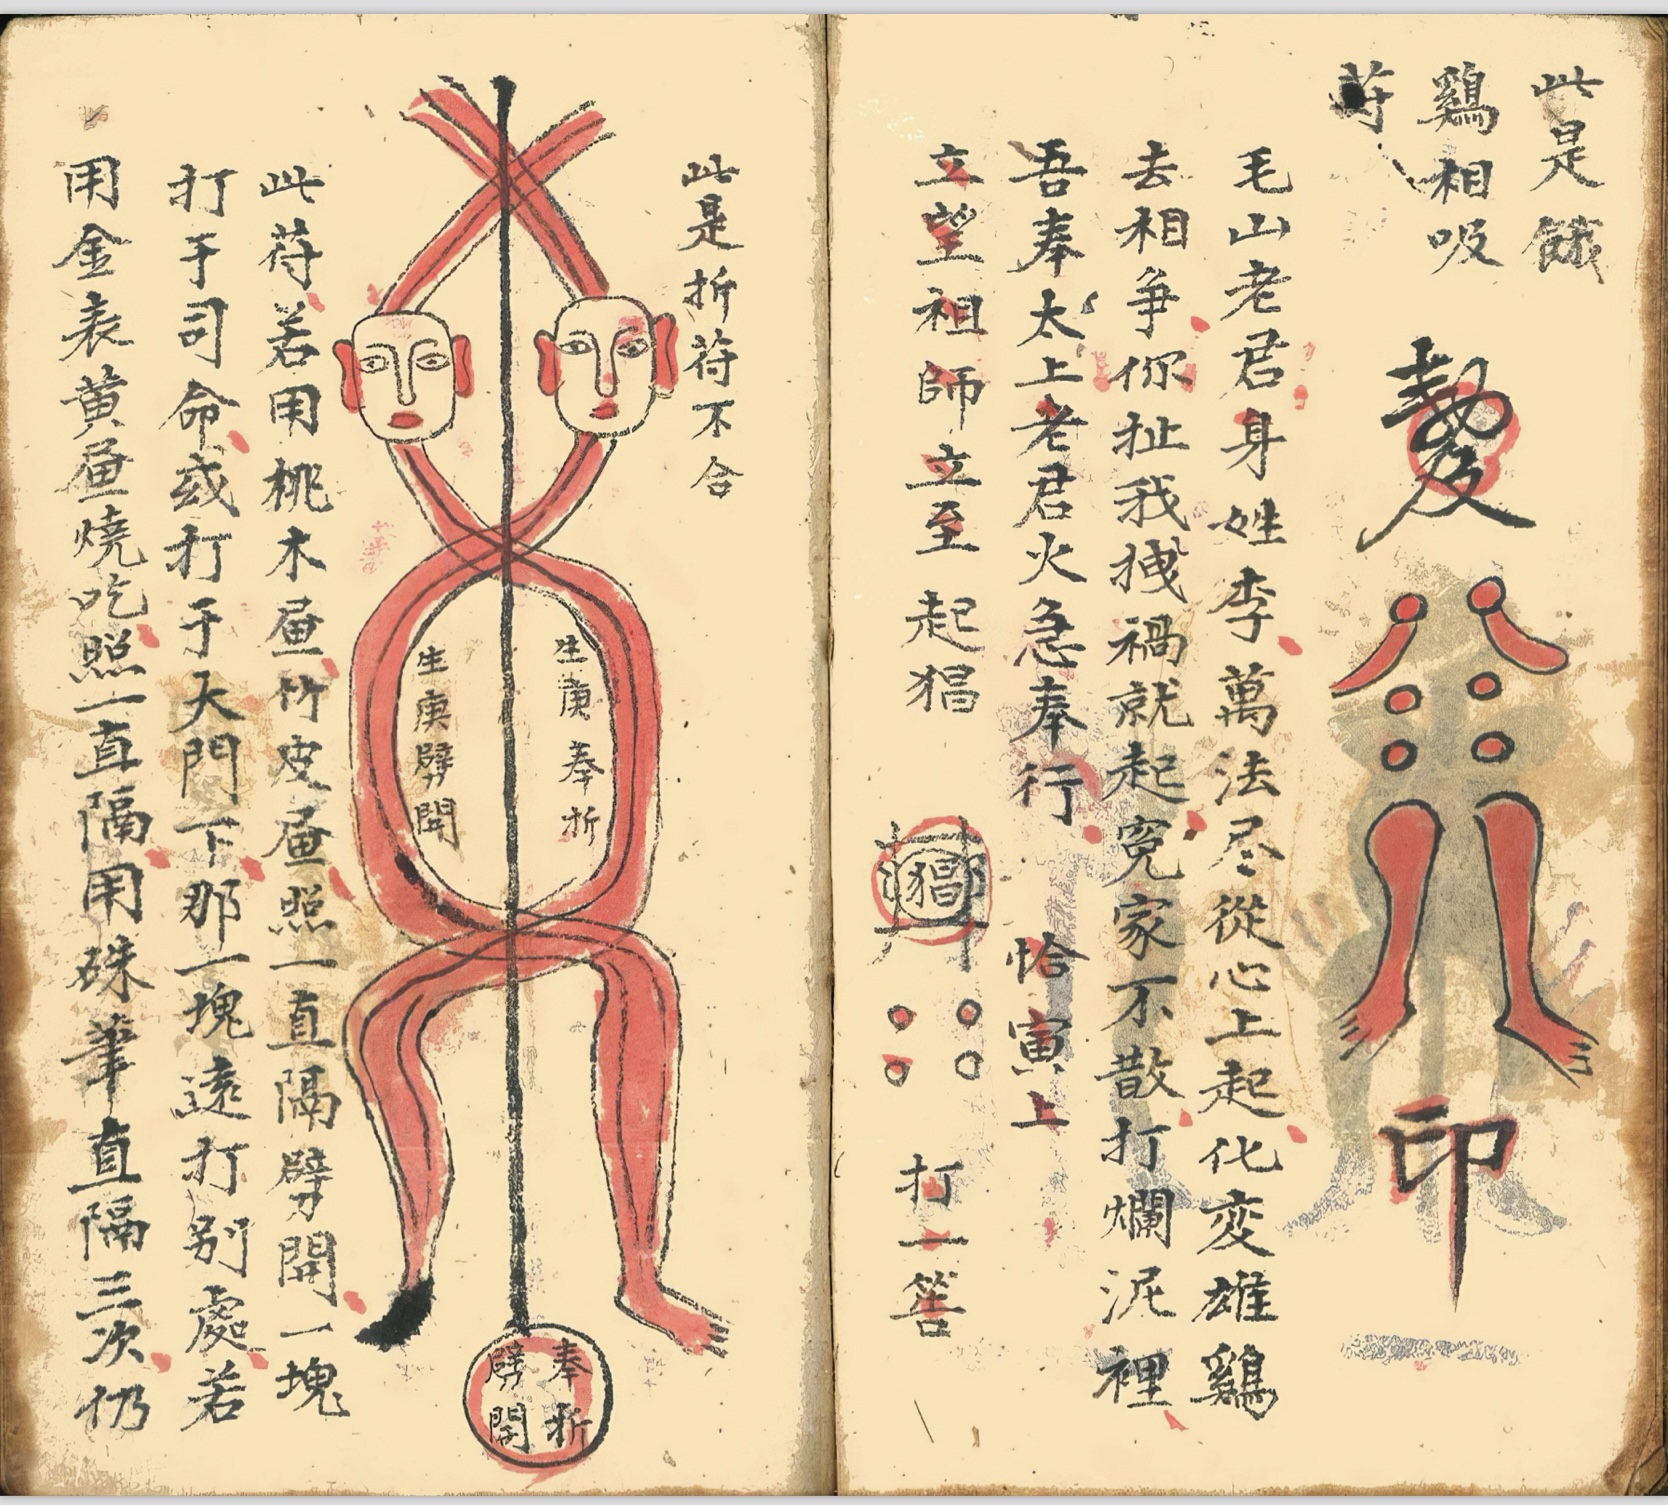 此是餓
鷄相吸
苻
印
毛山老君身姓李萬法尽從心上起化変雄鷄
去相爭你扯我拽禍就起寃家不散打爛泥裡
吾奉太上老君火急奉行 恰寅上
立望祖師立至 起猖
打一筶
此是折苻不合
生庚奉折
生庚劈開
奉折
劈開
此苻若用桃木畫竹皮畫照一直隔劈開一塊
打于司命或打于天門下那一塊遠打別處若
用金表黄畫燒吃照一直隔用硃筆直隔三次仍